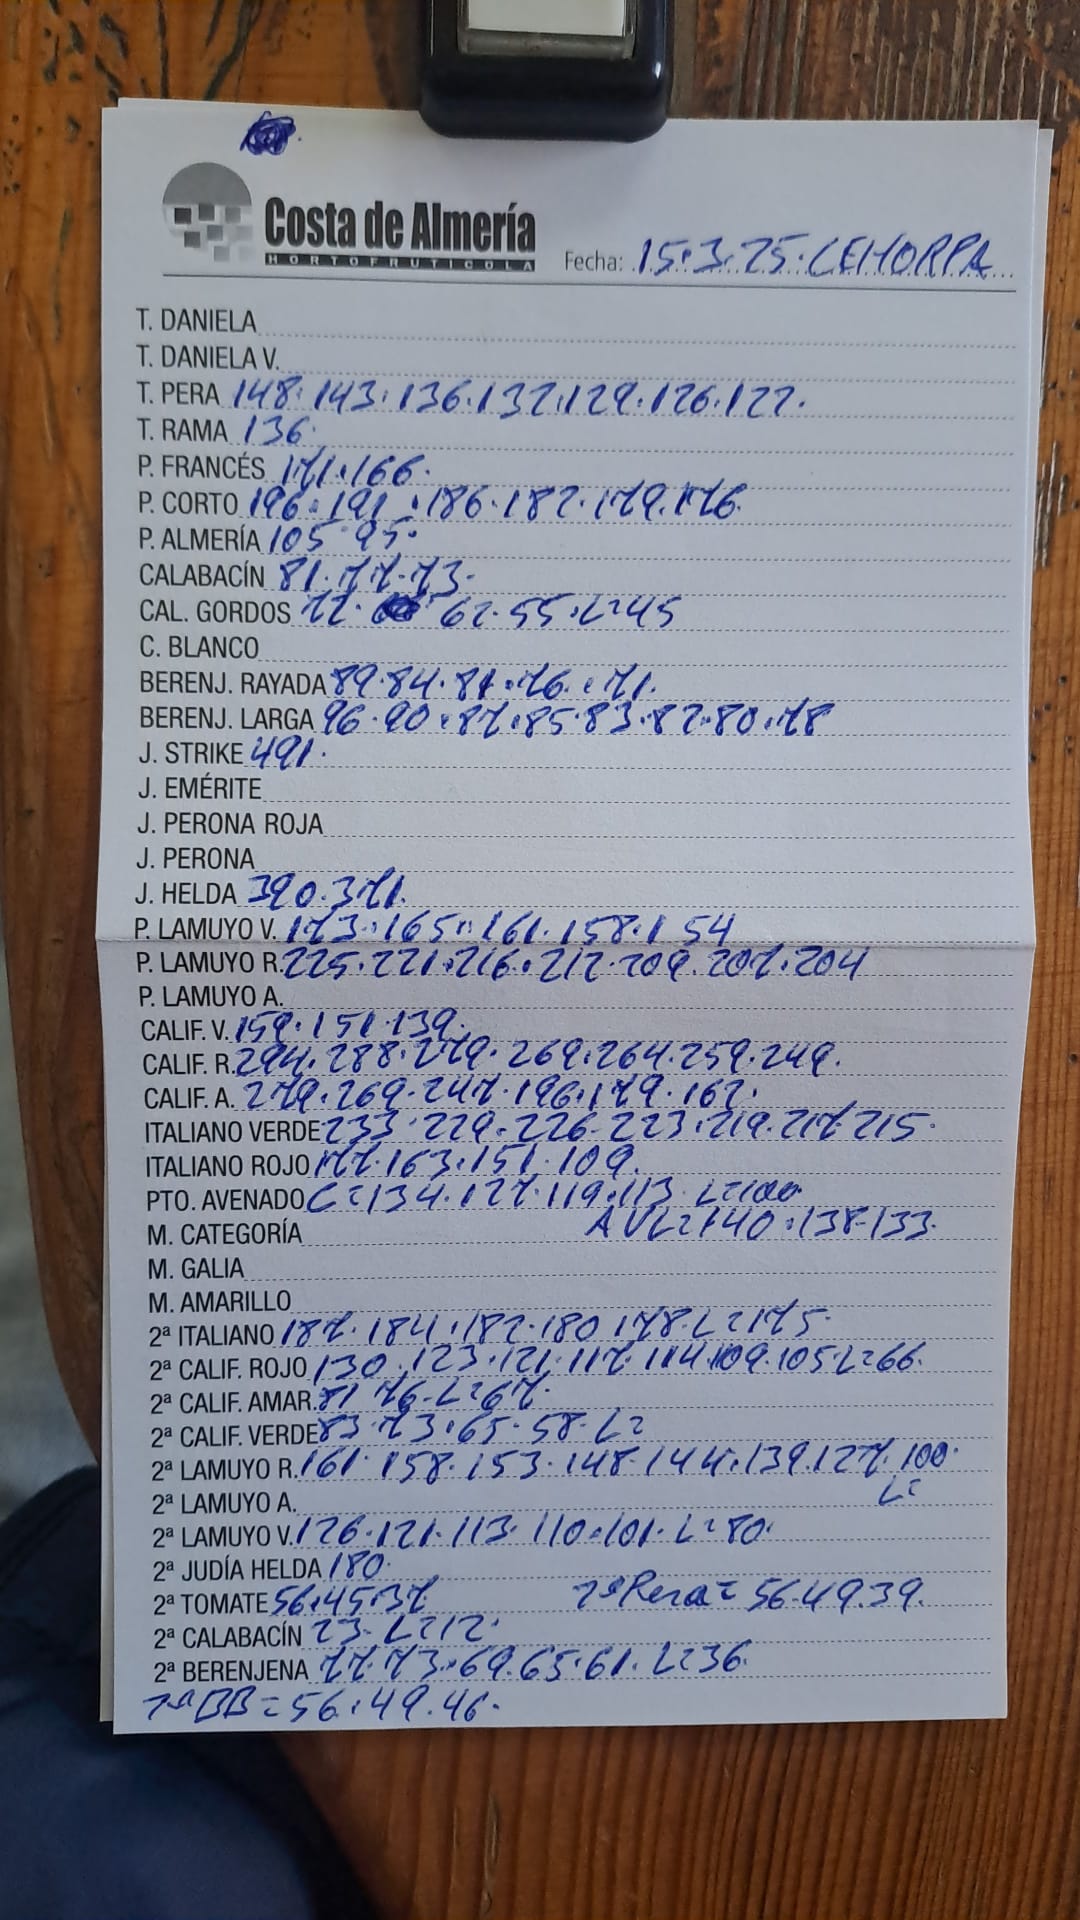 Costa de Almería
HORTOFRUTICOLA
Fecha: 15.3.25. CEHORPA
T. DANIELA
T. DANIELA V.
T. PERA 148. 143. 136. 132. 129. 126. 122.
T. RAMA 136.
P. FRANCÉS 171. 166.
P. CORTO 196. 191. 186. 182. 179. 176.
P. ALMERÍA 105 95.
CALABACÍN 81. 77. 73.
CAL. GORDOS 72. 62. 55. L=45
C. BLANCO
BERENJ. RAYADA 89. 84. 81. 76. 71.
BERENJ. LARGA 96. 90. 87. 85. 83. 82. 80. 78
J. STRIKE 491.
J. EMÉRITE
J. PERONA ROJA
J. PERONA
J. HELDA 390. 371.
P. LAMUYO V. 173. 165. 161. 158. 154
P. LAMUYO R. 225. 221. 216. 212. 209. 207. 204
P. LAMUYO A.
CALIF. V. 159. 151. 139.
CALIF. R. 294. 288. 279. 269. 264. 259. 249.
CALIF. A. 279. 269. 247. 196. 179. 162.
ITALIANO VERDE 233. 229. 226. 223. 219. 217. 215.
ITALIANO ROJO 177. 163. 151. 109.
PTO. AVENADO C=134. 127. 119. 113. L=100
AVL=140. 138. 133.
M. CATEGORÍA
M. GALIA
M. AMARILLO
2ª ITALIANO 187. 184. 182. 180. 178. L=175.
2ª CALIF. ROJO 130. 123. 121. 117. 114. 109. 105. L=66.
2ª CALIF. AMAR. 81 76. L=67.
2ª CALIF. VERDE 83 73. 65. 58. L=
2ª LAMUYO R. 161. 158. 153. 148. 144. 139. 127. 100.
L=
2ª LAMUYO A.
2ª LAMUYO V. 126. 121. 113. 110. 101. L=80.
2ª JUDÍA HELDA 180.
2ª TOMATE 56. 45. 37 2ª Pera = 56. 49. 39.
2ª CALABACÍN 23. L=12.
2ª BERENJENA 77. 73. 69. 65. 61. L=36.
2ª BB = 56. 49. 46.